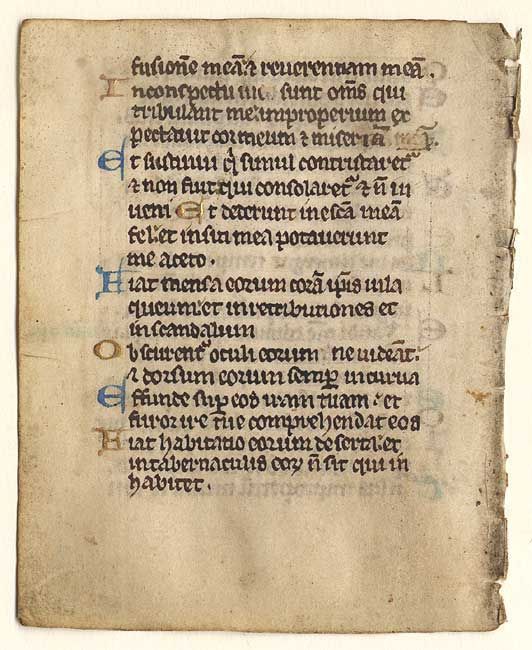 fusionē meā & reverentiam meā.
In conspectu tuo sunt om̄s qui
tribulant me improperium ex
pectavit cor meum & miseriā meā.
Et sustinui q̄ simul contristaret᷑
& non fuit qui consolaret᷑ & n̄ in
veni Et dederunt in escā meā
fel: et in siti mea potaverunt
me aceto.
Fiat mensa eorum corā ip̄is in la
queum: et in retributiones et
in scandalum
Obscurent᷑ oculi eorum ne videāt:
& dorsum eorum semꝑ incurva
Effunde suꝑ eos iram tuam: et
furor ire tue comprehendat eos
Fiat habitatio eorum deserta: et
in tabernaculis eoꝝ n̄ sit qui in
habitet.